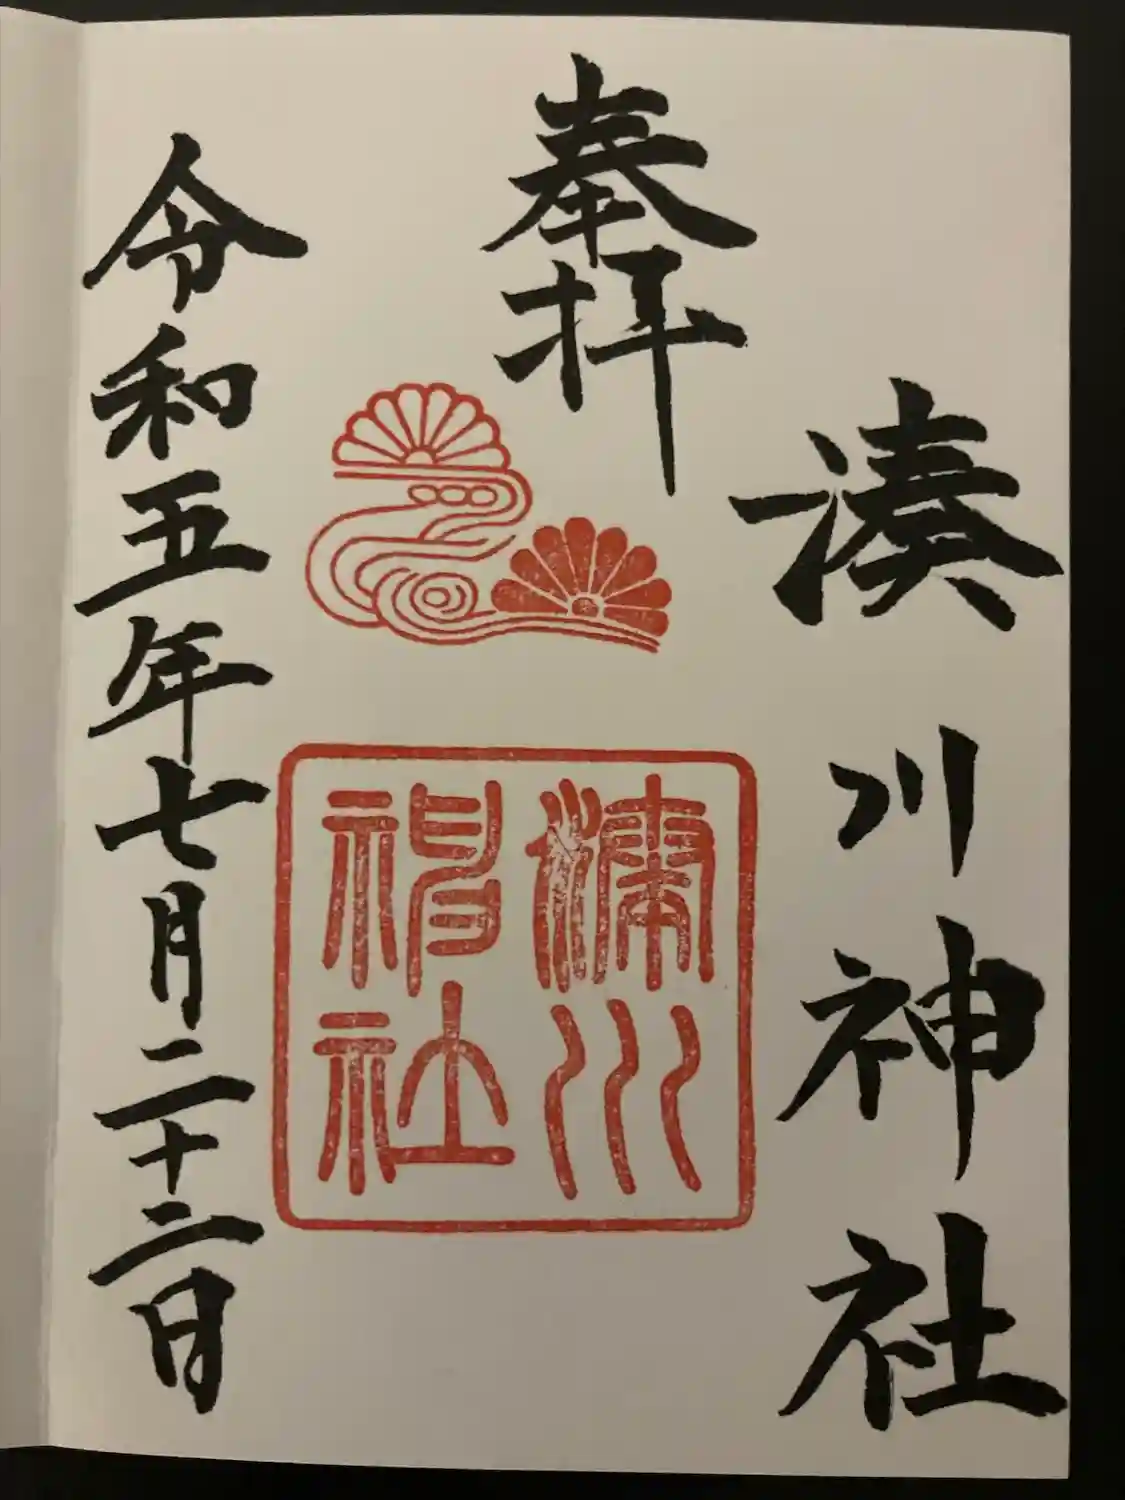 奉拝
湊川神社
湊川
神社
令和五年七月二十二日